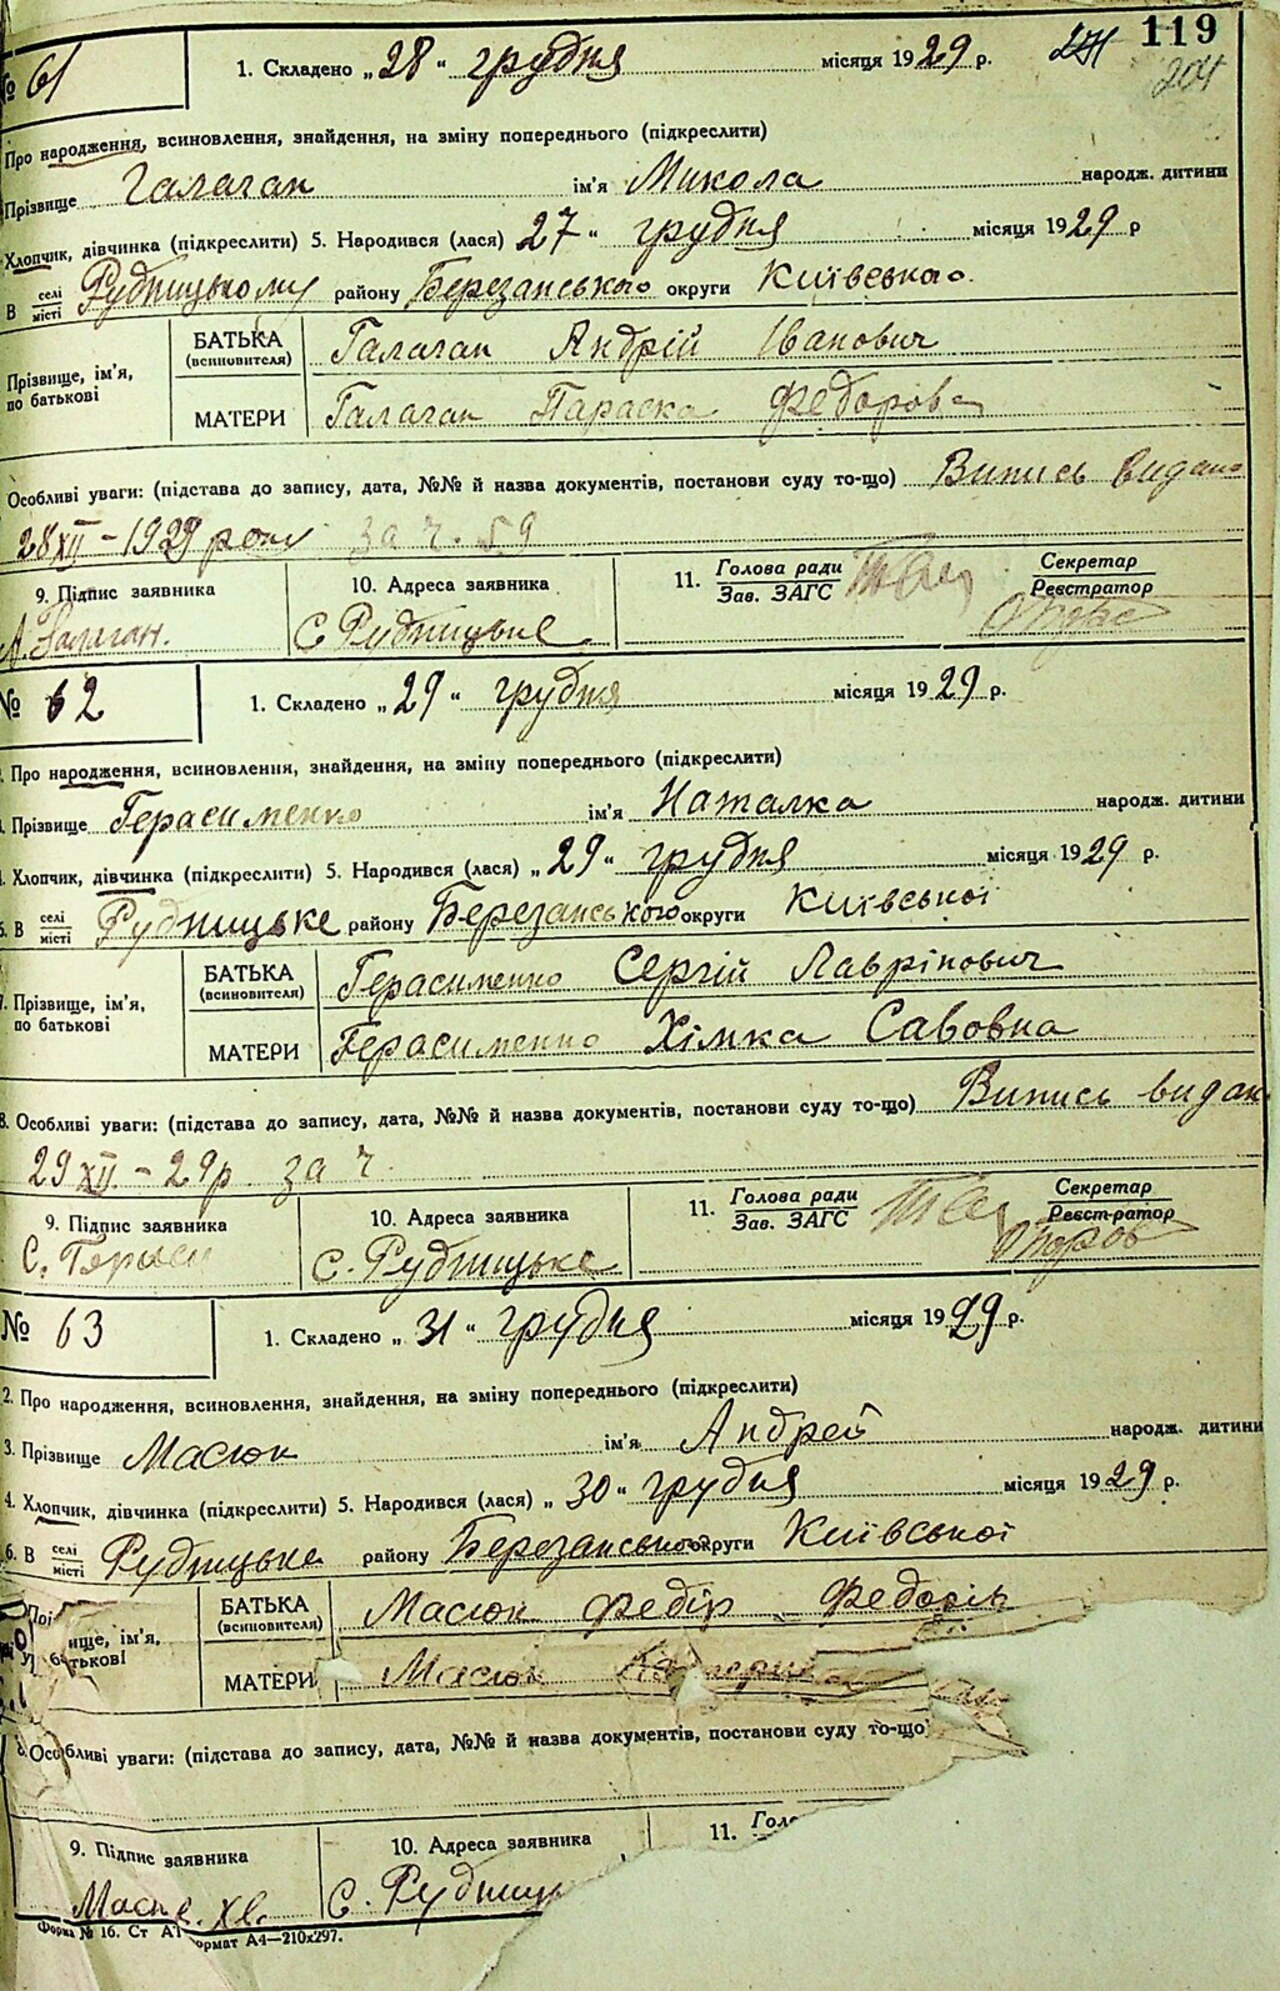 119
204
№ 61
1. Складено „ 28 “ грудня місяця 1929 р.
Про народження, всиновлення, знайдення, на зміну попереднього (підкреслити)
Прізвище Галаган ім'я Микола народж. дитини
Хлопчик, дівчинка (підкреслити) 5. Народився (лася) 27 “ грудня місяця 1929 р
В селі місті Рудницькому району Березанського округи Київського.
Прізвище, ім'я, по батькові
БАТЬКА (всиновителя) Галаган Андрій Іванович
МАТЕРИ Галаган Параска Федоровна
Особливі уваги: (підстава до запису, дата, №№ й назва документів, постанови суду то-що) Випись видано
28 XII – 1929 року за ч. 59
9. Підпис заявника
10. Адреса заявника
11. Голова ради Зав. ЗАГС
Секретар Реєстратор
А. Галаган.
С Рудницьке
№ 62
1. Складено „ 29 “ грудня місяця 1929 р.
Про народження, всиновлення, знайдення, на зміну попереднього (підкреслити)
Прізвище Герасименко ім'я Наталка народж. дитини
Хлопчик, дівчинка (підкреслити) 5. Народився (лася) „ 29 “ грудня місяця 1929 р.
6. В селі місті Рудницьке району Березанського округи Київської
7. Прізвище, ім'я, по батькові
БАТЬКА (всиновителя) Герасименко Сергій Лаврінович
МАТЕРИ Герасименко Хімка Савовна
8. Особливі уваги: (підстава до запису, дата, №№ й назва документів, постанови суду то-що) Випись видан
29 XII. – 29 р. за ч.
9. Підпис заявника
10. Адреса заявника
11. Голова ради Зав. ЗАГС
Секретар Реєстратор
С. Гераси
С. Рудницьке
№ 63
1. Складено „ 31 “ грудня місяця 1929 р.
2. Про народження, всиновлення, знайдення, на зміну попереднього (підкреслити)
3. Прізвище Масюк ім'я Андрей народж. дитини
4. Хлопчик, дівчинка (підкреслити) 5. Народився (лася) „ 30 “ грудня місяця 1929 р.
6. В селі місті Рудницьке району Березанського округи Київської
ище, ім'я, батькові
БАТЬКА (всиновителя) Масюк Федір
МАТЕРИ Масюк
8. Особливі уваги: (підстава до запису, дата, №№ й назва документів, постанови суду то-що
9. Підпис заявника
10. Адреса заявника
11. Голо
С. Рудниц
Форма № 16. Ст формат А4—210х297.